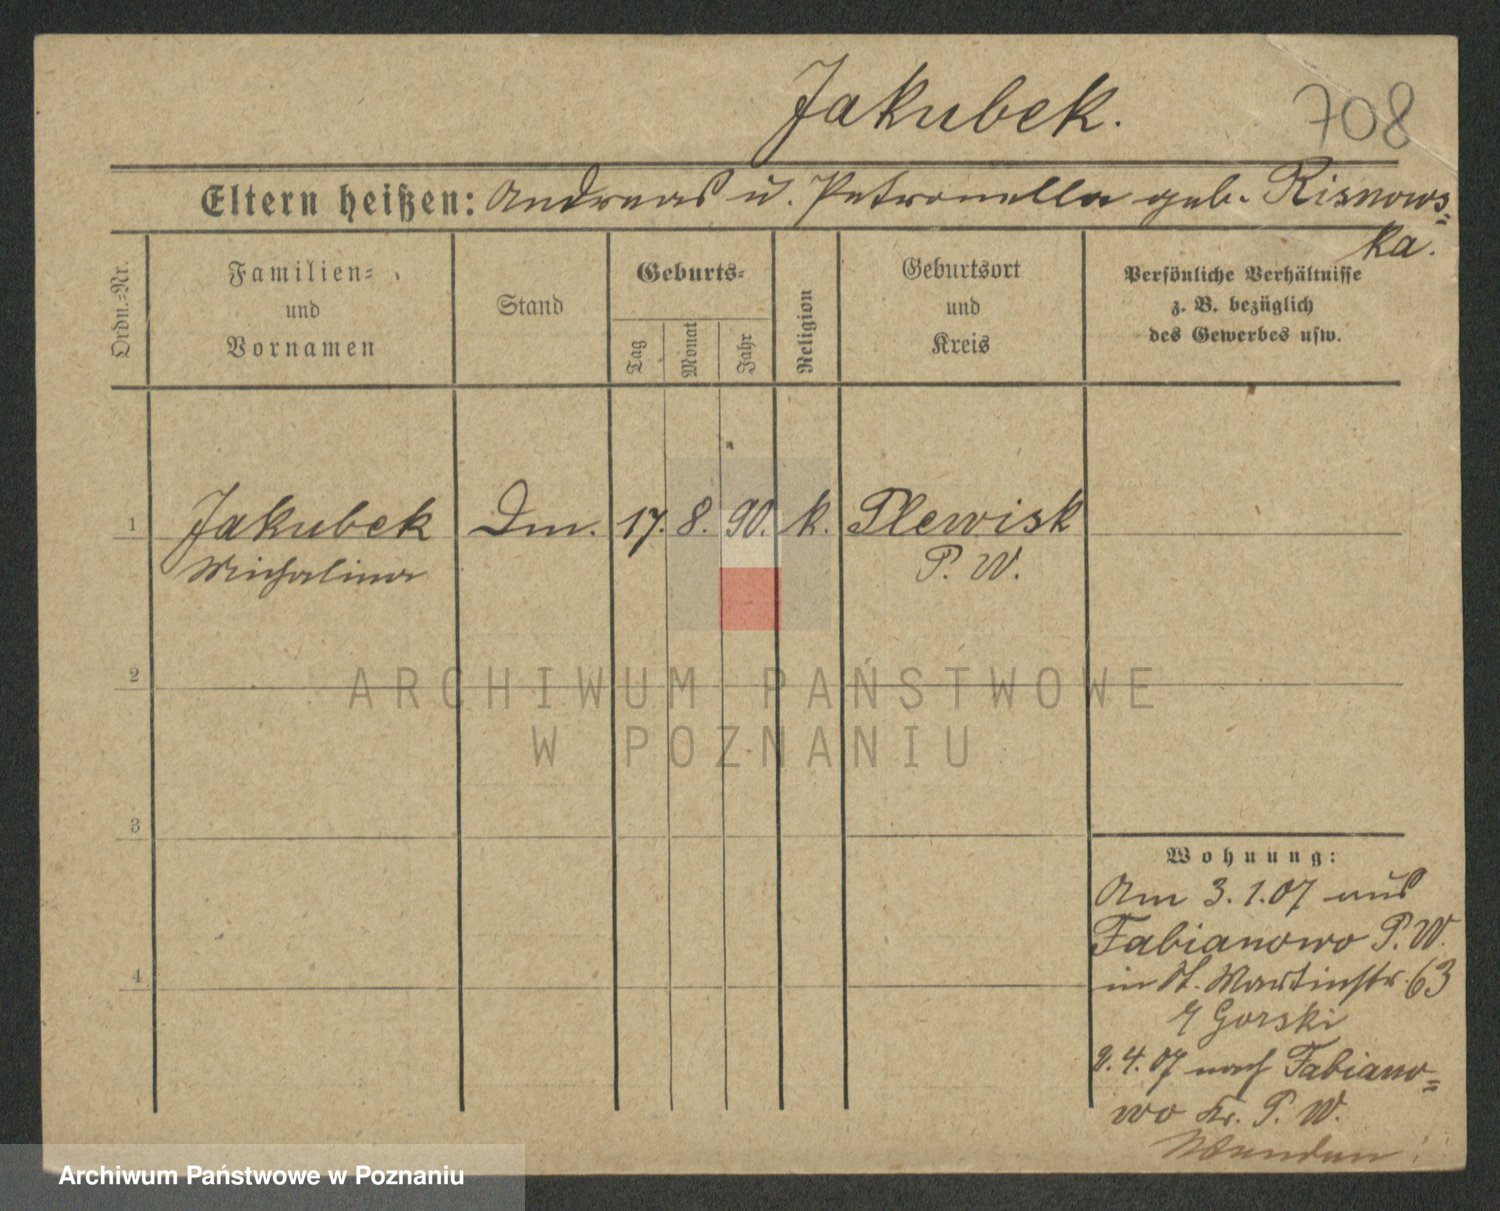 Jakubek.
708
Eltern heißen: Andreas u. Petronella geb. Risnows=
ka.
Ordn.=Nr.
Familien=
und
Vornamen
Stand
Geburts=
Tag
Monat
Jahr
Religion
Geburtsort
und
Kreis
Persönliche Verhältnisse
z. B. bezüglich
des Gewerbes usw.
1 Jakubek Dm. 17. 8. 90. k. Plewisk
Michalina P. W.
2
ARCHIWUM PAŃSTWOWE
W POZNANIU
3
Wohnung:
Am 3.1.07 aus
Fabianowo P. W.
4
in St. Martinstr. 63
Gorski
2.4.07 nach Fabiano=
wo Kr. P. W.
Archiwum Państwowe w Poznaniu